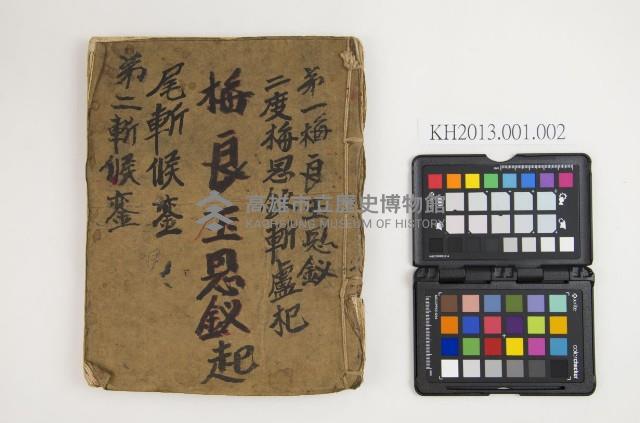 第一梅良玉思釵
二度梅思釵斬盧杞
梅良玉思釵起
尾斬候鑾
第二斬候鑾
高雄市立歷史博物館
KAOHSIUNG MUSEUM OF HISTORY
KH2013.001.002